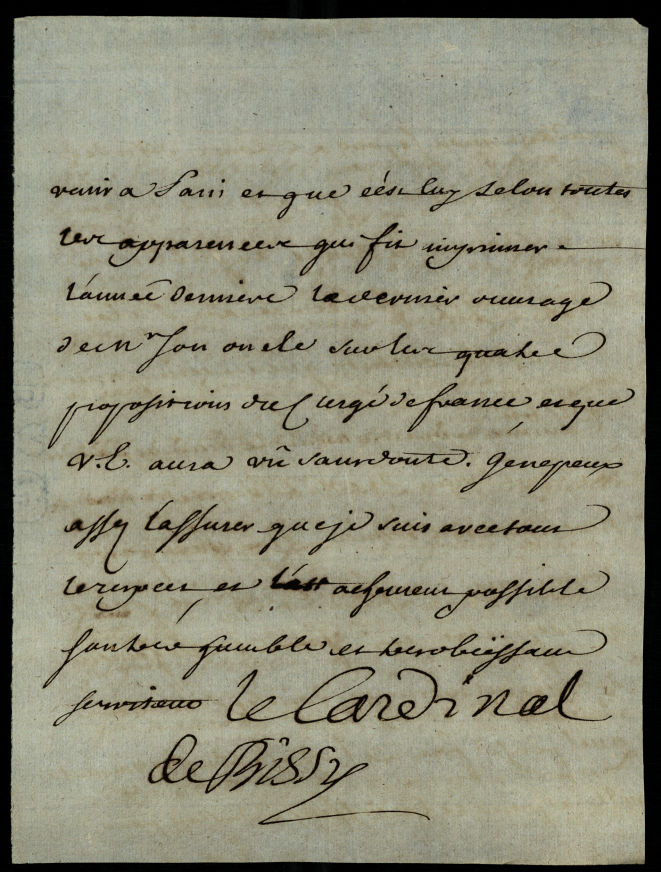 venir a Paris et que c'est luy selon toutes
les apparences qui fit imprimer
l'année derniere le dernier ouvrage
de Mr son oncle sur les quatre
propositions du Clergé de france et que
V.E. aura vû sans doute. Je ne peux
assez l'assurer que je suis avec tout
le respect et l'attachement possible
son tres humble et tres obëissant
serviteur le Cardinal
de Bissy